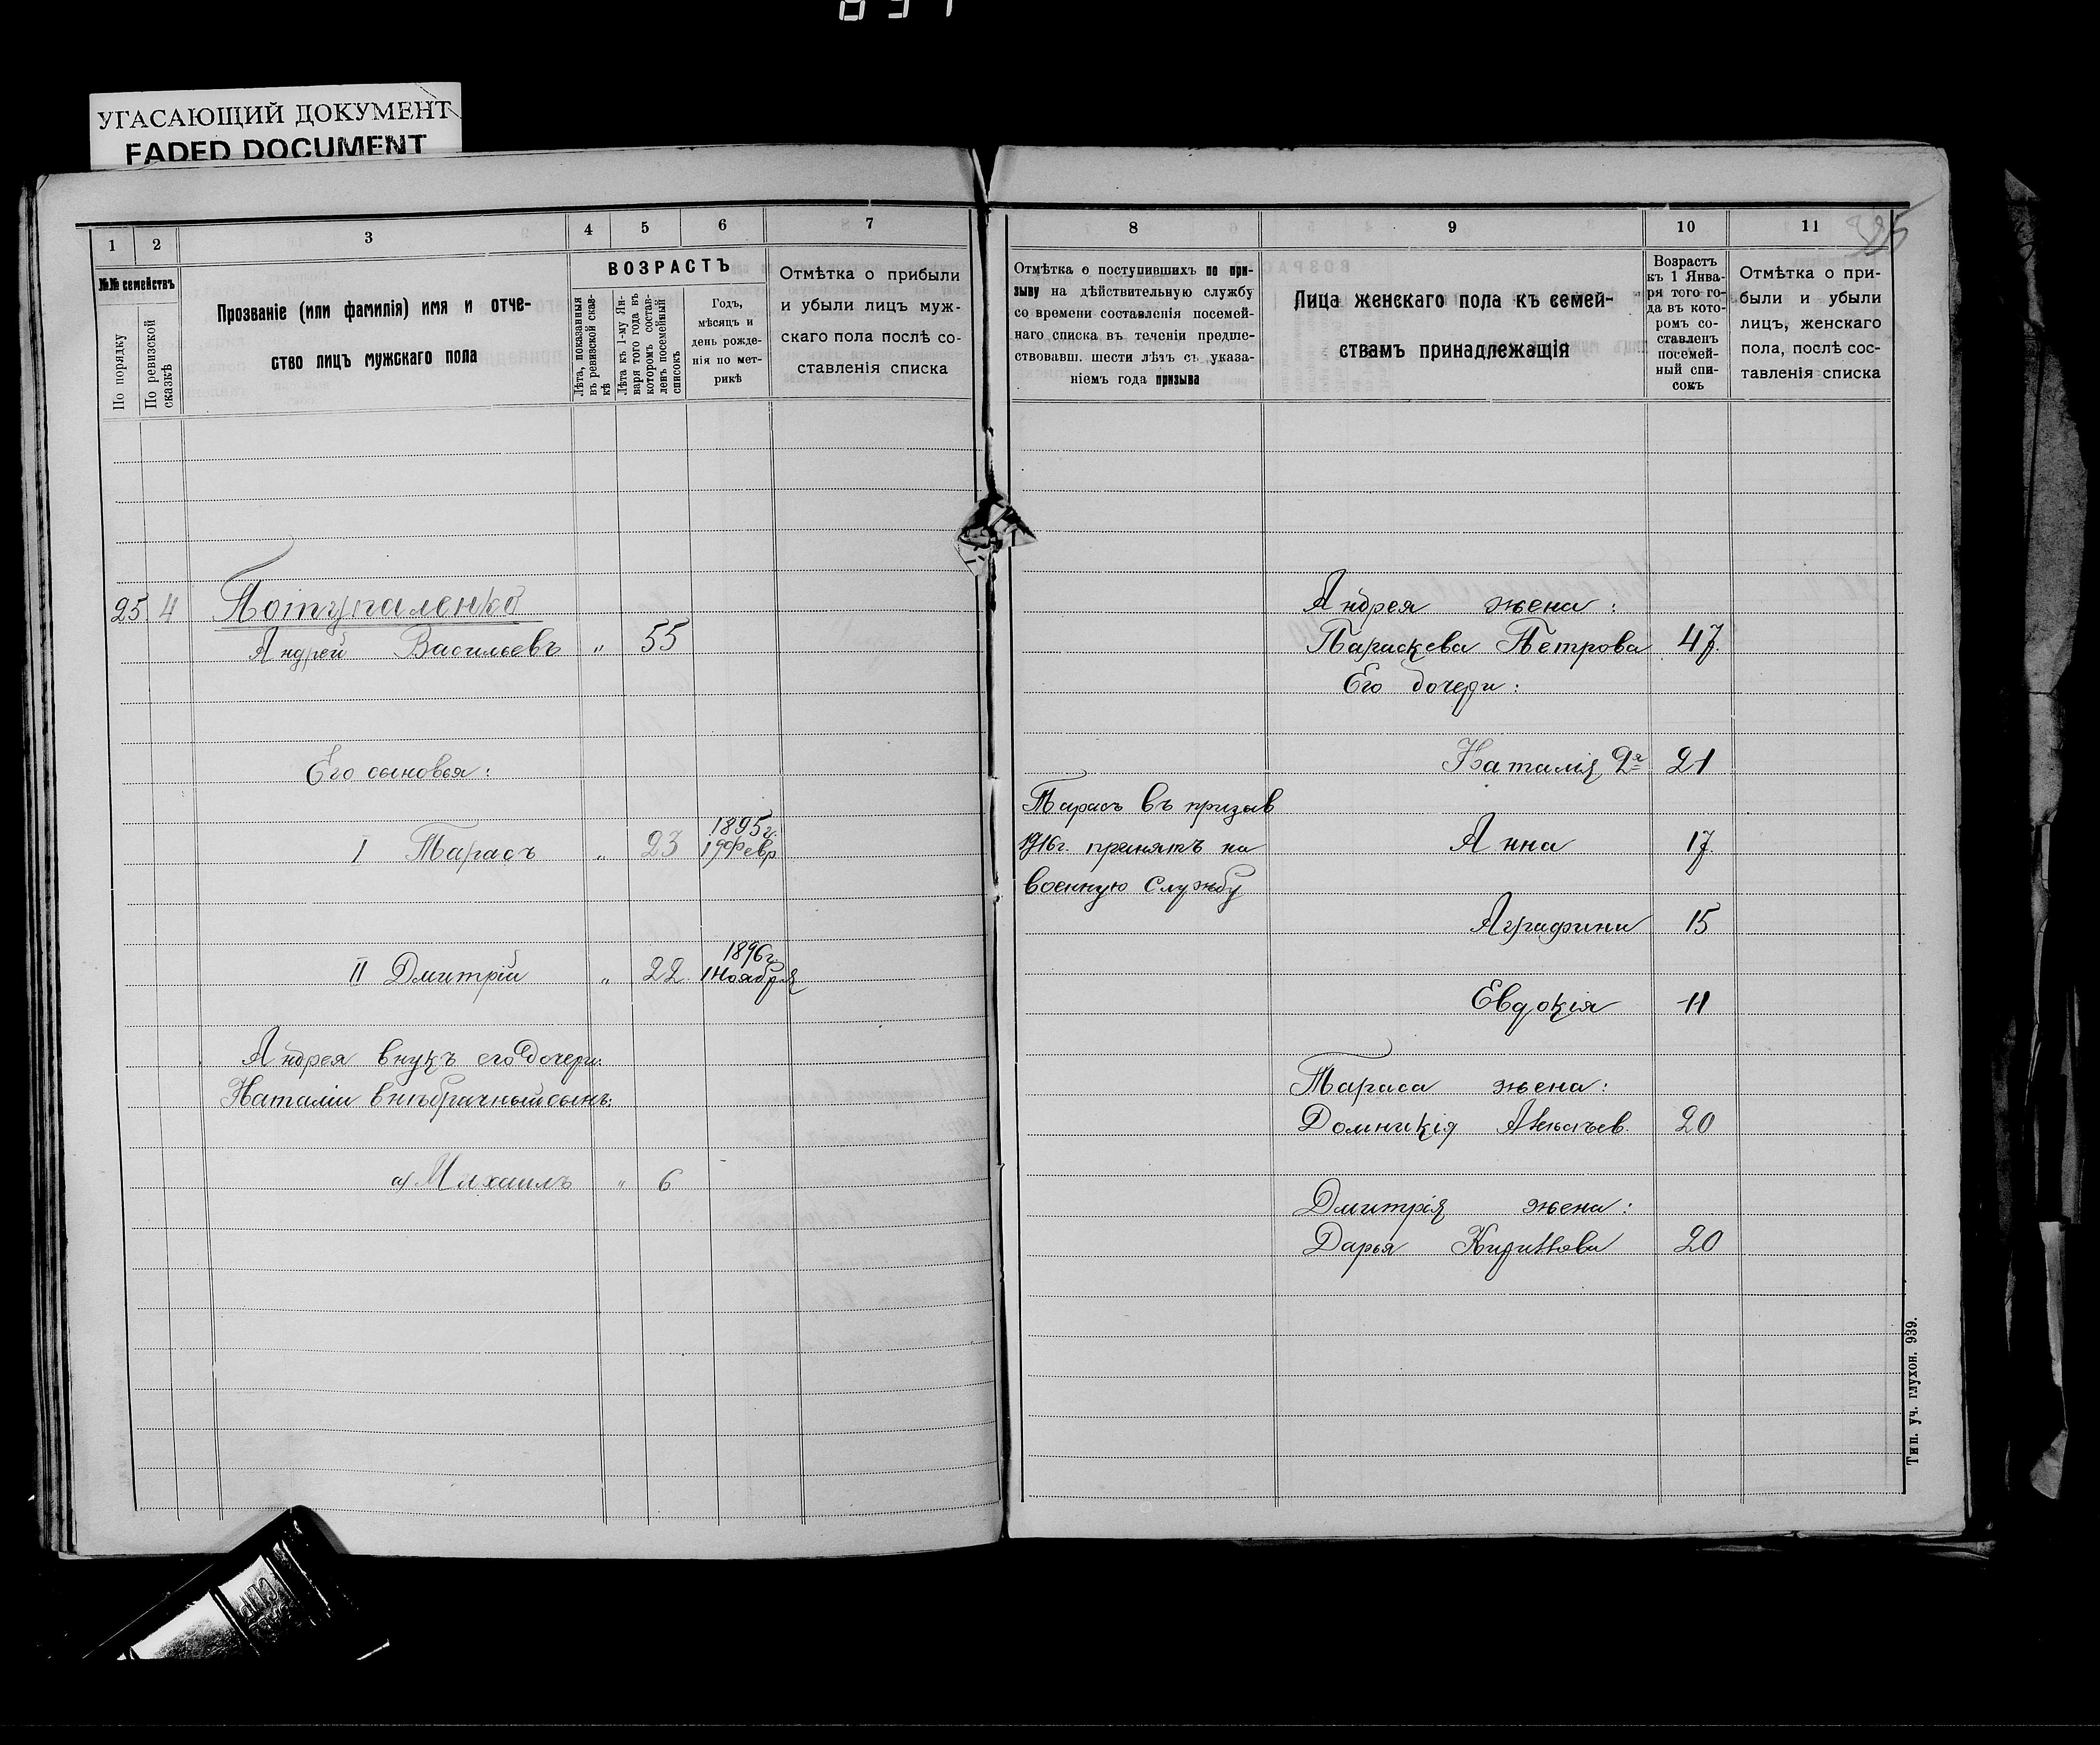 УГАСАЮЩИЙ ДОКУМЕНТ
FADED DOCUMENT
1 2 3 4 5 6 7
№№ семействъ
По порядку
По ревизской сказкѣ
Прозваніе (или фамилія) имя и отче-
ство лицъ мужскаго пола
ВОЗРАСТЪ
Лѣта, показанныя
въ ревизской сказ-
кѣ
Лѣта къ 1-му Ян-
варя того года въ
которомъ состав-
ленъ посемейный
списокъ
Годъ,
мѣсяцъ и
день рожде-
нія по мет-
рикѣ
Отмѣтка о прибыли
и убыли лицъ муж-
скаго пола послѣ со-
ставленія списка
25. 4 Потупаленко
Андрей Васильевъ „ 55
Его сыновья:
1895г.
I Тарасъ „ 23 19 Февр
1896г.
II Дмитрій „ 22. 1 Ноября
Андрея внукъ его дочери:
Наталіи внѣбрачный сынъ:
а) Михаилъ „ 6
8 9 10 11
325
Отмѣтка о поступившихъ по при-
зыву на дѣйствительную службу
со времени составленія посемей-
наго списка въ теченіи предше-
ствовавш. шести лѣтъ съ указа-
ніемъ года призыва
Лица женскаго пола къ семей-
ствамъ принадлежащія
Возрастъ
къ 1 Янва-
ря того го-
да въ кото-
ромъ со-
ставленъ
посемей-
ный спи-
сокъ
Отмѣтка о при-
были и убыли
лицъ, женскаго
пола, послѣ сос-
тавленія списка
Андрея жена:
Параскева Петрова 47.
Его дочери:
Наталія 2я 21
Тарасъ въ призыв
1916г. принятъ на
военную службу
Анна 17.
Аграфина 15
Евдокія 11
Тараса жена:
Домникія 20
Дмитрія жена:
Дарья Кириллова 20
Тип. уч. глухон. 939.